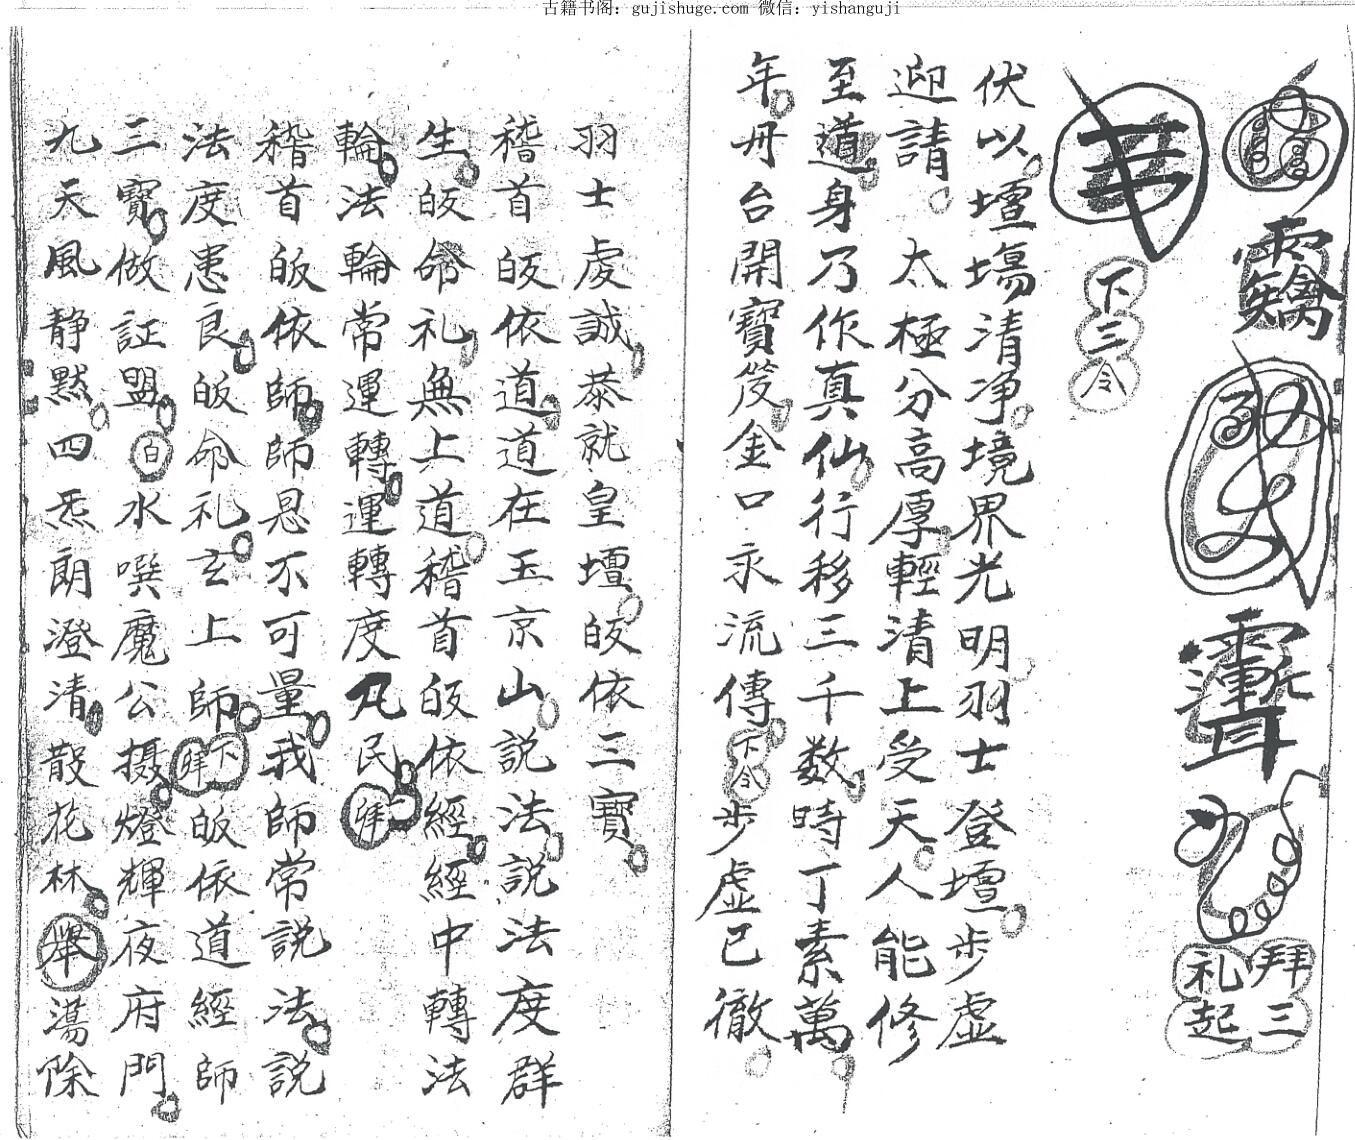 古籍书阁：gujishuge.com 微信：yishanguji
拜三
礼起
下三令
伏以壇塲清净境界光明羽士登壇步虚
迎請太極分高厚輕清上受天人能修
至道身乃作真仙行移三千数時丁素萬
年丹台開寳笈金口永流傳下令步虚已徹
羽士虔誠恭就皇壇皈依三寳
稽首皈依道道在玉京山説法説法度群
生皈命礼無上道稽首皈依經經中轉法
輪法輪常運轉運轉度凡民拜
稽首皈依師師恩不可量我師常説法説
法度患良皈命礼玄上師下拜皈依道經師
三寳做証盟白水噀魔公摄燈輝夜府門
九天風静黙四炁朗澄清散花林舉蕩除